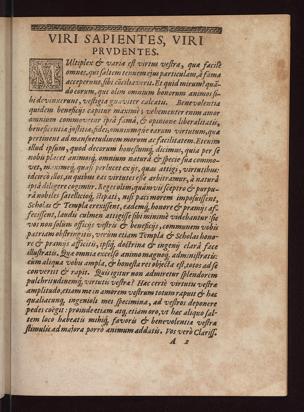 VIRI SAPIENTES, VIRI
PRVDENTES.
MVltiplex & varia est virtus vestra, qua facilè
omnes, qui saltem tenuem eius particulam, à fama
acceperunt, sibi cõciliaveris. Et quid mirum? quã-
do eorum, qui olim omnium bonorum animos si-
bi devinxerunt, vestigia gnaviter calcatis. Benevolentia
quidem beneficijs capitur maximè; vehementer enim amor
omnium commovetur ipsâ famâ, & opinione liberalitatis,
beneficentiæ, justitiæ, fidei, omniumque earum virtutum, quæ
pertinent ad mansuetudinem morum ac facilitatem. Etenim
illud ipsum, quod decorum honestumq; dicimus, quia per se
nobis placet animosq; omnium naturâ & specie sua commo-
vet, maximeq; quasi perlucet ex ijs, quas attigi, virtutibus:
idcirco illos, in quibus eas virtutes esse arbitramur, à naturâ
ipsâ deligere cogimur. Reges olim, quàmvis sceptro & purpu-
râ nobiles satellitioq; stipati, nisi pati morem imposuissent,
Scholas & Templa erexissent, eademq; honore & præmijs af-
fecissent, laudis culmen attigisse sibi minimè videbantur: sic
vos non solùm officijs vestris & beneficijs, communem vobis
patriam obstringitis, verùm etiam Templa & Scholas hono-
re & præmijs afficitis, ipsiq; doctrina & ingenij clarâ face
illustratis. Quæ omnia excelso animo magnoq; administratis:
cùm aliqua vobis ampla, & honesta res objecta est, totos ad se
convertit & rapit. Quis igitur non admiretur splendorem
pulchritudinemq; virtutis vestræ? Hæc certè virtutis vestræ
amplitudo, etiam me in amorem vestrum totum rapuit & hæc
qualiacunq; ingenioli mei specimina, ad vestros deponere
pedes coëgit: proinde etiam atq; etiam oro, ut hæc aliquo sal-
tem loco habeatis mihiq; favoris & benevolentiæ vestræ
stimulis ad majora porrò animum addatis. Vos verò Clariss.
A 2